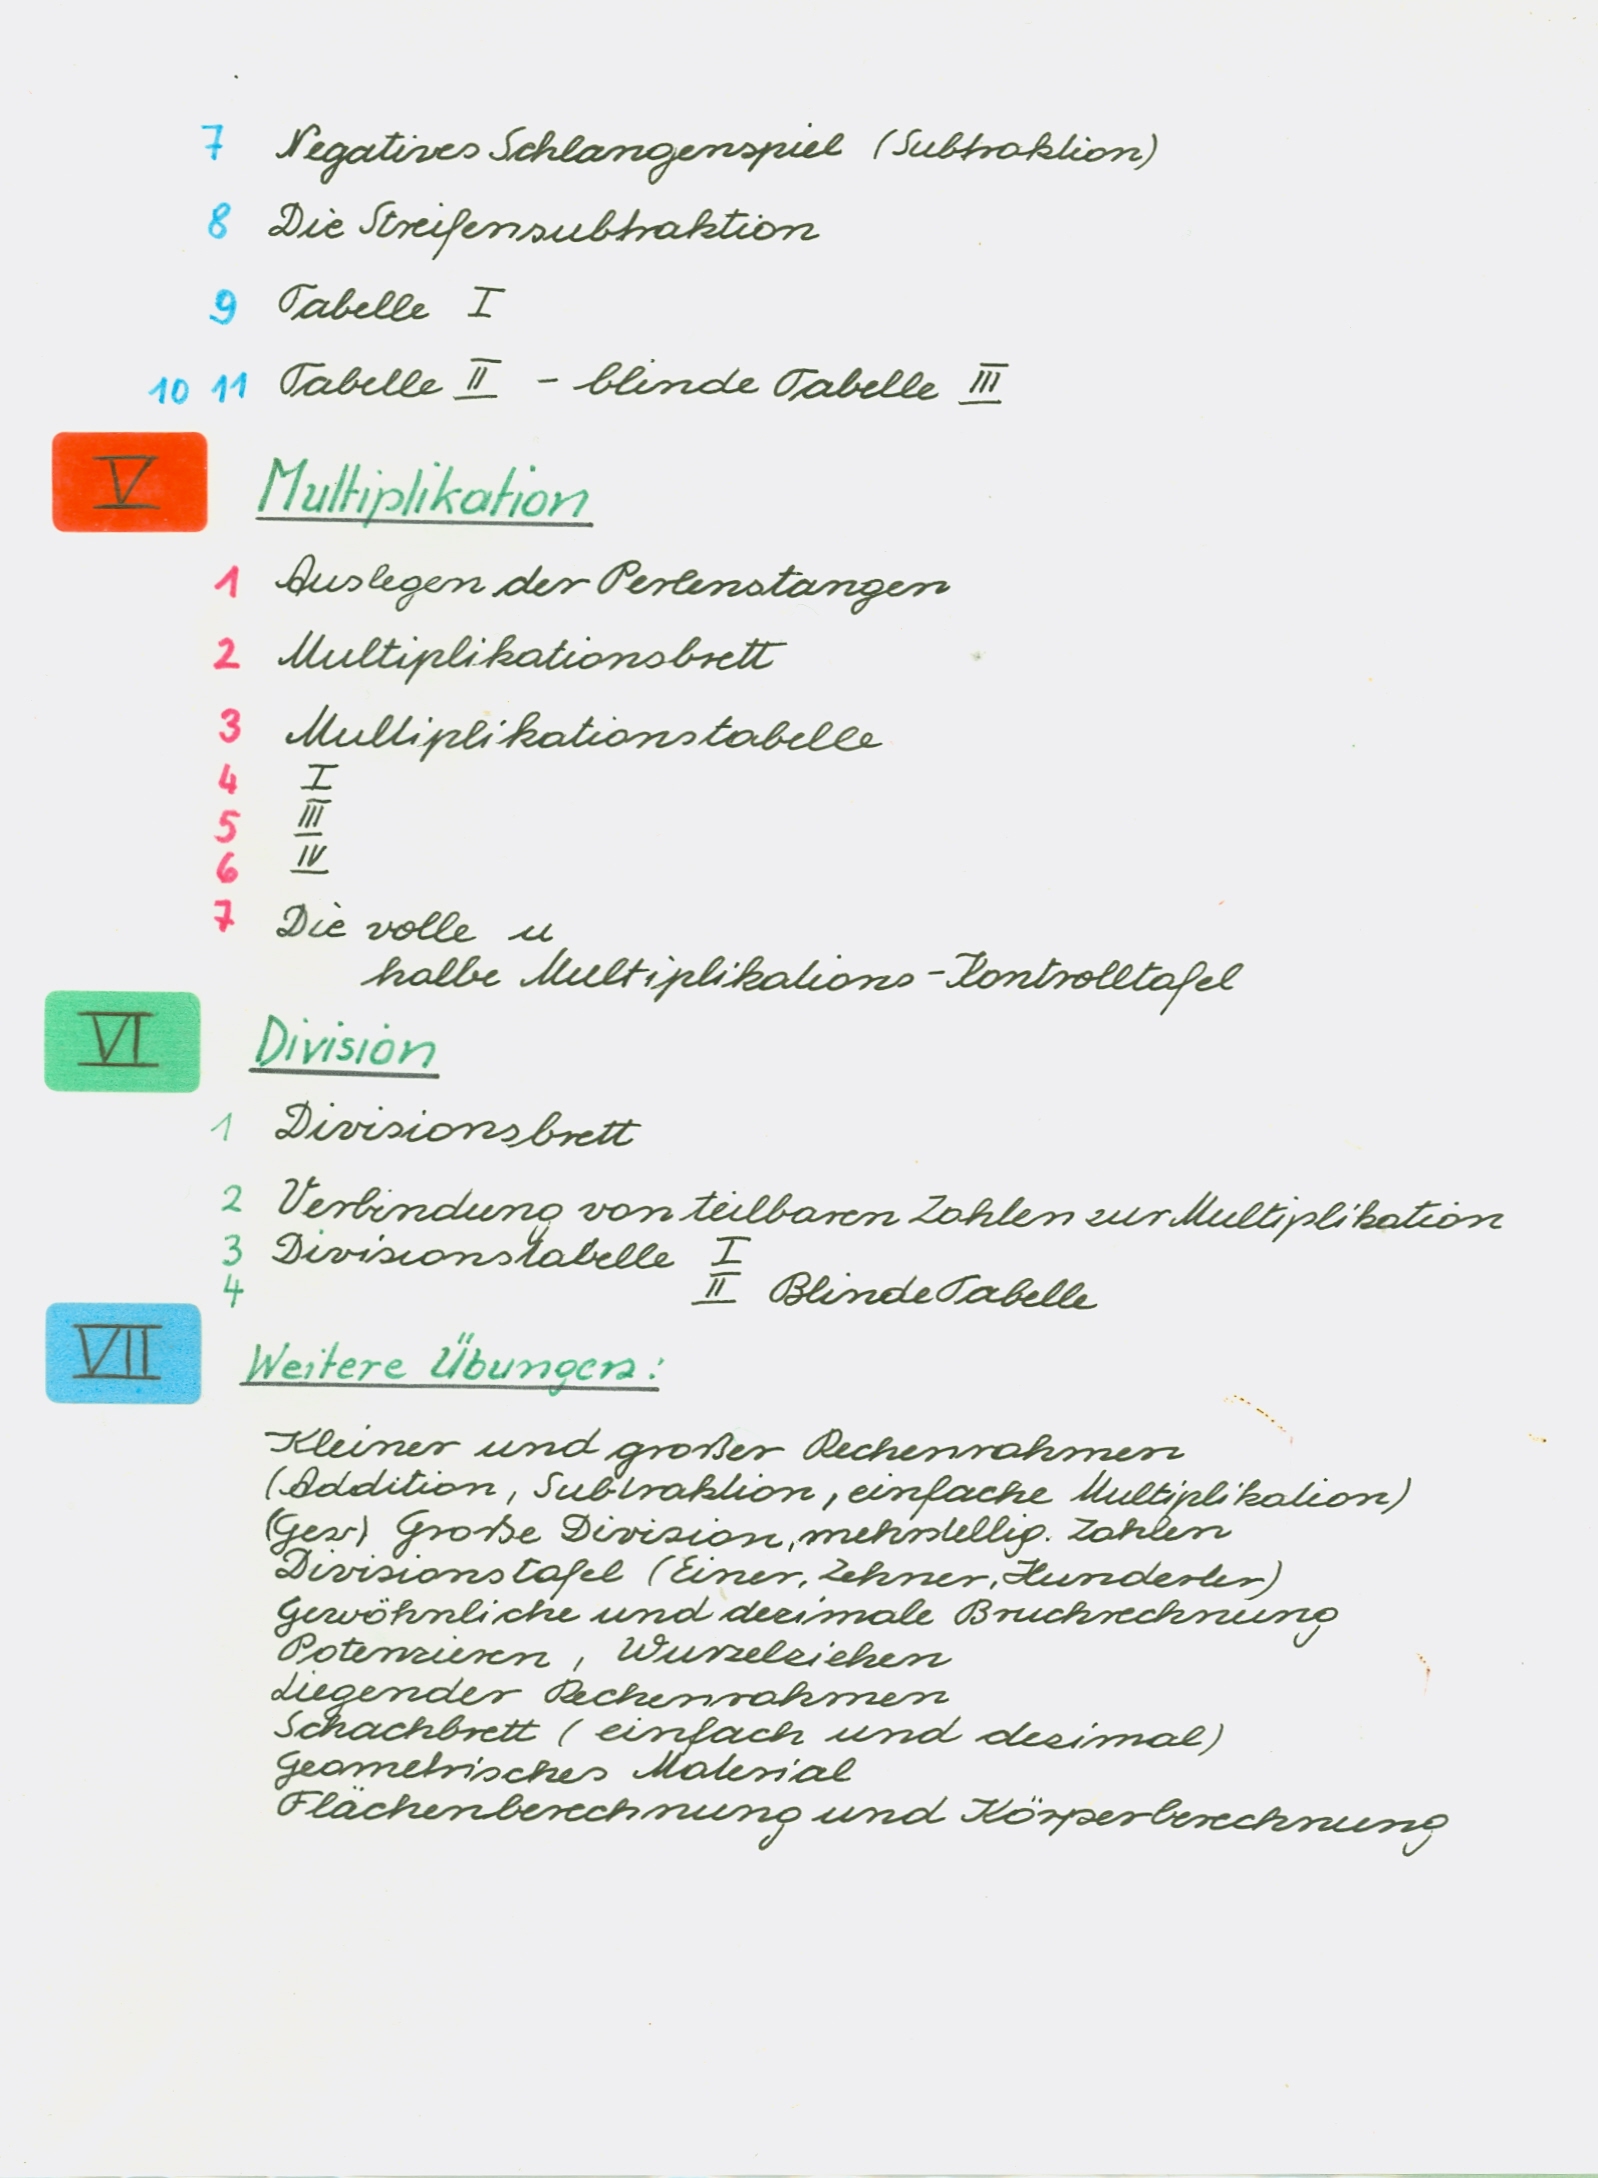 7 Negatives Schlangenspiel (Subtraktion)
8 Die Streifensubtraktion
9 Tabelle I
10 11 Tabelle II - blinde Tabelle III
V Multiplikation
1 Auslegen der Perlenstangen
2 Multiplikationsbrett
3 Multiplikationstabelle
4 I
5 III
6 IV
7 Die volle u
halbe Multiplikations-Kontrolltafel
VI Division
1 Divisionsbrett
2 Verbindung von teilbaren Zahlen zur Multiplikation
3 Divisionstabelle I
4 II Blinde Tabelle
VII Weitere Übungen:
Kleiner und großer Rechenrahmen
(Addition, Subtraktion, einfache Multiplikation)
Große Division, mehrstellig. Zahlen
Divisionstafel (Einer, Zehner, Hunderter)
Gewöhnliche und dezimale Bruchrechnung
Potenzieren, Wurzelziehen
Liegender Rechenrahmen
Schachbrett (einfach und dezimal)
Geometrisches Material
Flächenberechnung und Körperberechnung